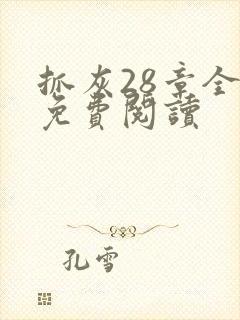 抓灰28章全
免費閱讀
孔雪